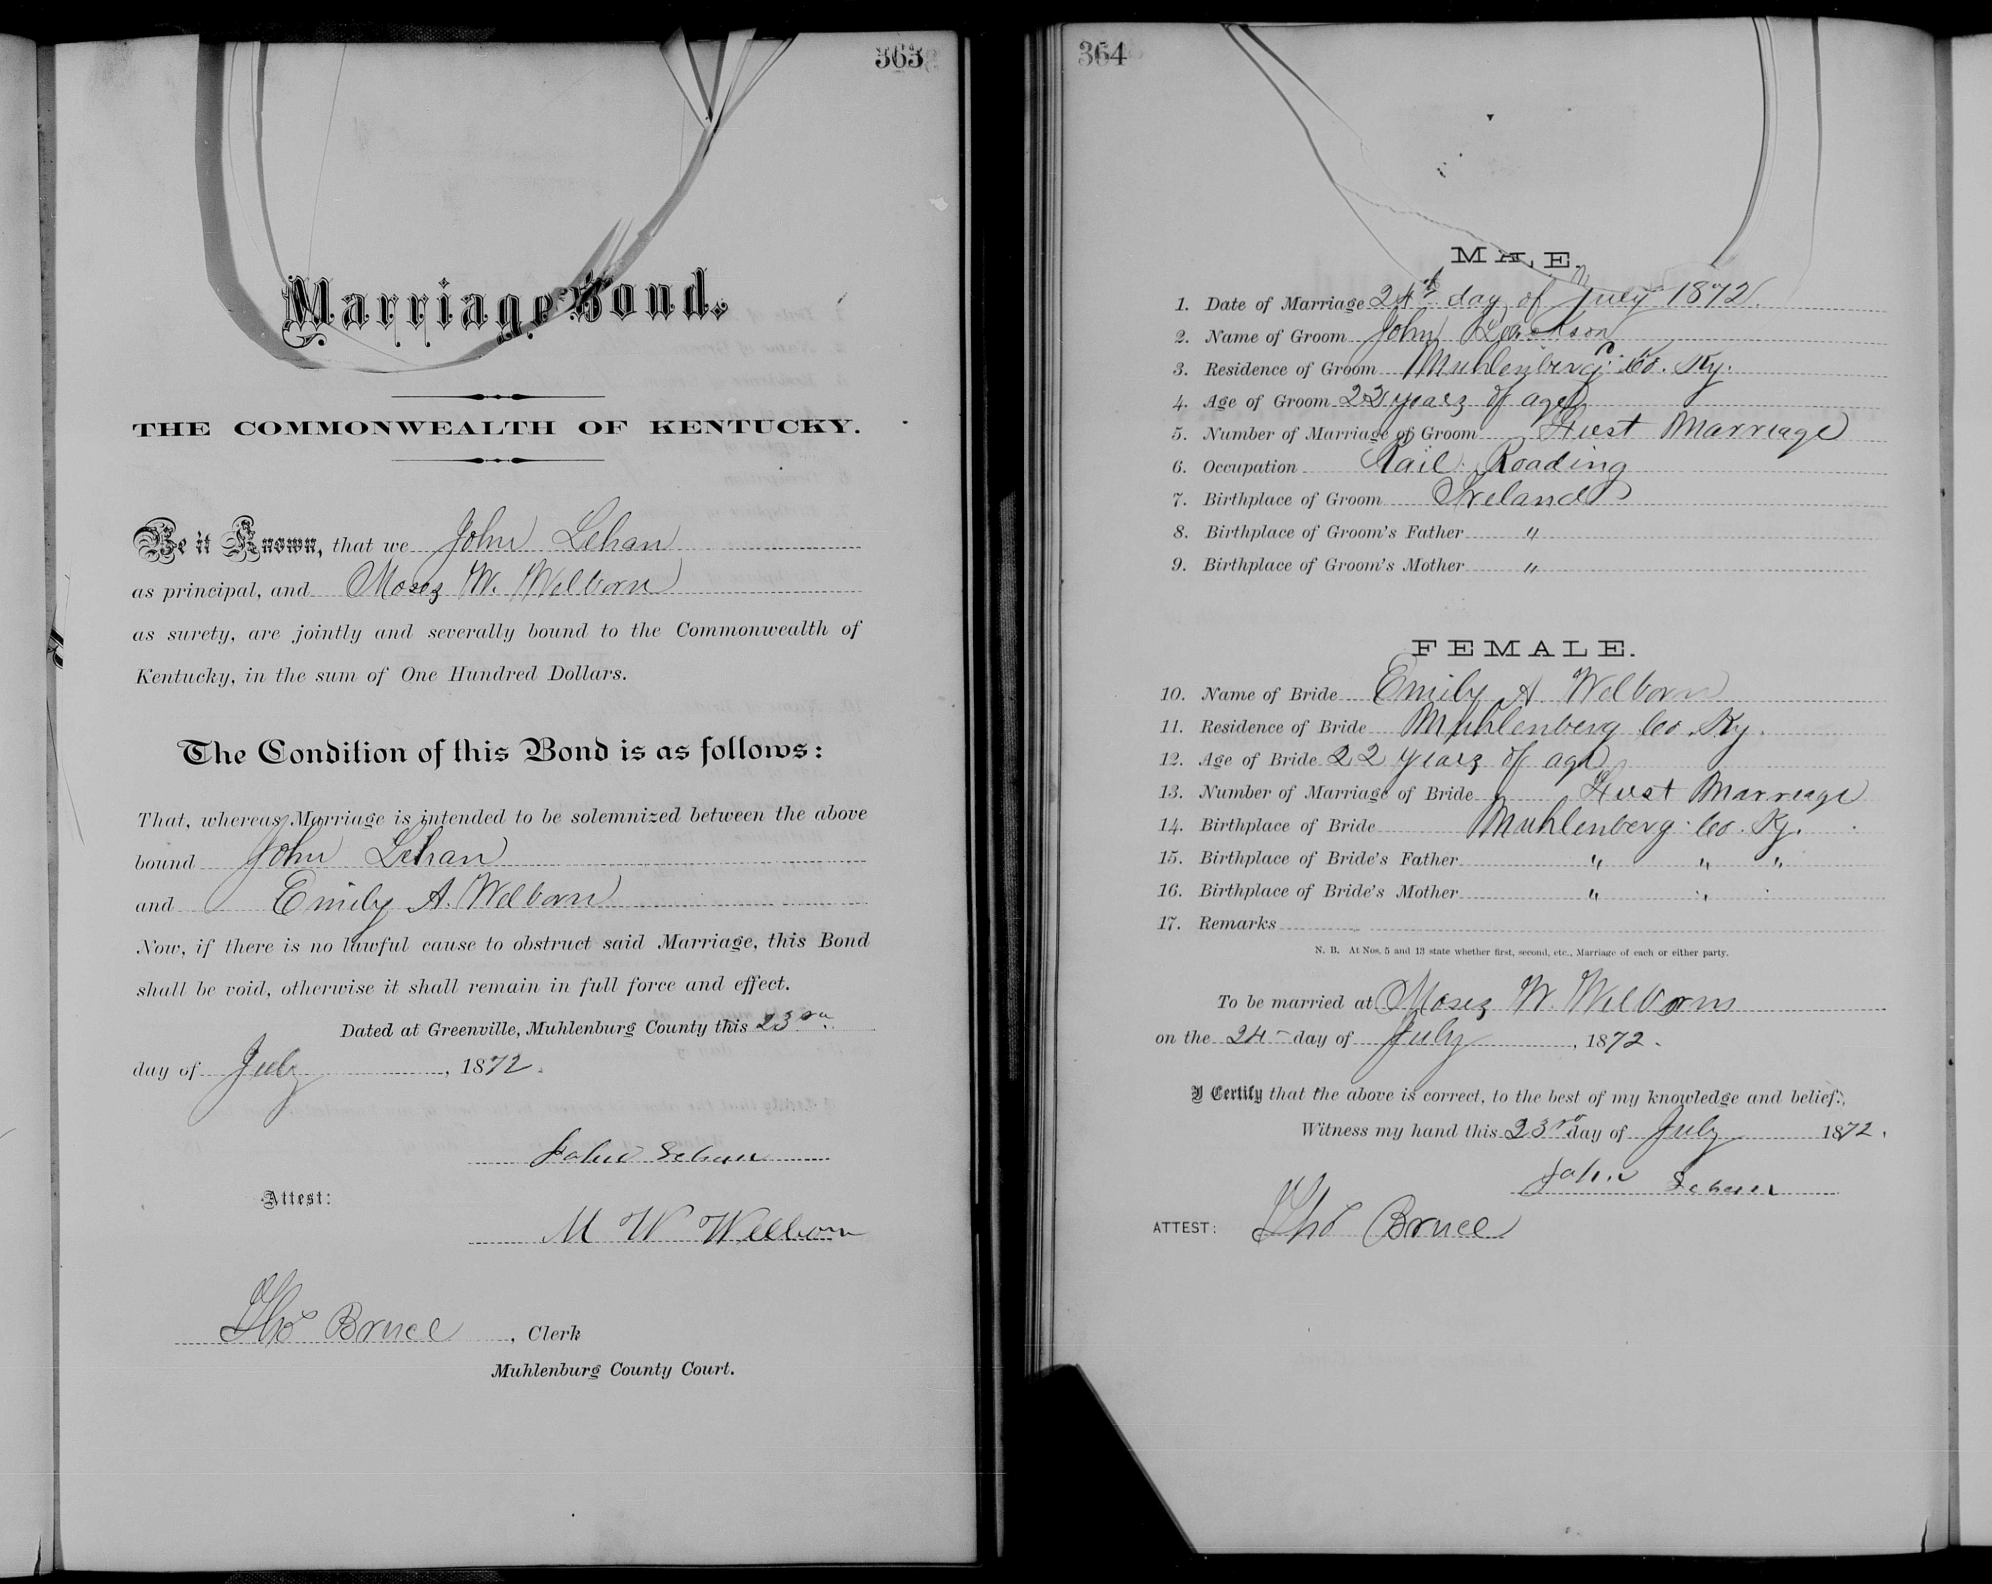 363
Marriage Bond.
THE COMMONWEALTH OF KENTUCKY.
Be it Known, that we John Lehan
as principal, and Moses W. Welborn
as surety, are jointly and severally bound to the Commonwealth of
Kentucky, in the sum of One Hundred Dollars.
The Condition of this Bond is as follows:
That, whereas Marriage is intended to be solemnized between the above
bound John Lehan
and Emily A. Welborn
Now, if there is no lawful cause to obstruct said Marriage, this Bond
shall be void, otherwise it shall remain in full force and effect.
Dated at Greenville, Muhlenburg County this 23rd
day of July, 1872.
John Lehan
Attest:
M W Welborn
Thos Bruce, Clerk
Muhlenburg County Court.
364
MALE.
1. Date of Marriage 24th day of July 1872.
2. Name of Groom John
3. Residence of Groom Muhlenberg Co. Ky.
4. Age of Groom 22 years of age
5. Number of Marriage of Groom First Marriage
6. Occupation Rail Roading
7. Birthplace of Groom Ireland
8. Birthplace of Groom's Father "
9. Birthplace of Groom's Mother "
FEMALE.
10. Name of Bride Emily A. Welborn
11. Residence of Bride Muhlenberg Co. Ky.
12. Age of Bride 22 years of age
13. Number of Marriage of Bride First Marriage
14. Birthplace of Bride Muhlenberg Co. Ky.
15. Birthplace of Bride's Father " " "
16. Birthplace of Bride's Mother " "
17. Remarks
N. B. At Nos. 5 and 13 state whether first, second, etc., Marriage of each or either party.
To be married at Moses W. Welborns
on the 24 day of July, 1872.
I Certify that the above is correct, to the best of my knowledge and belief.
Witness my hand this 23rd day of July 1872.
John Lehan
ATTEST: Thos Bruce